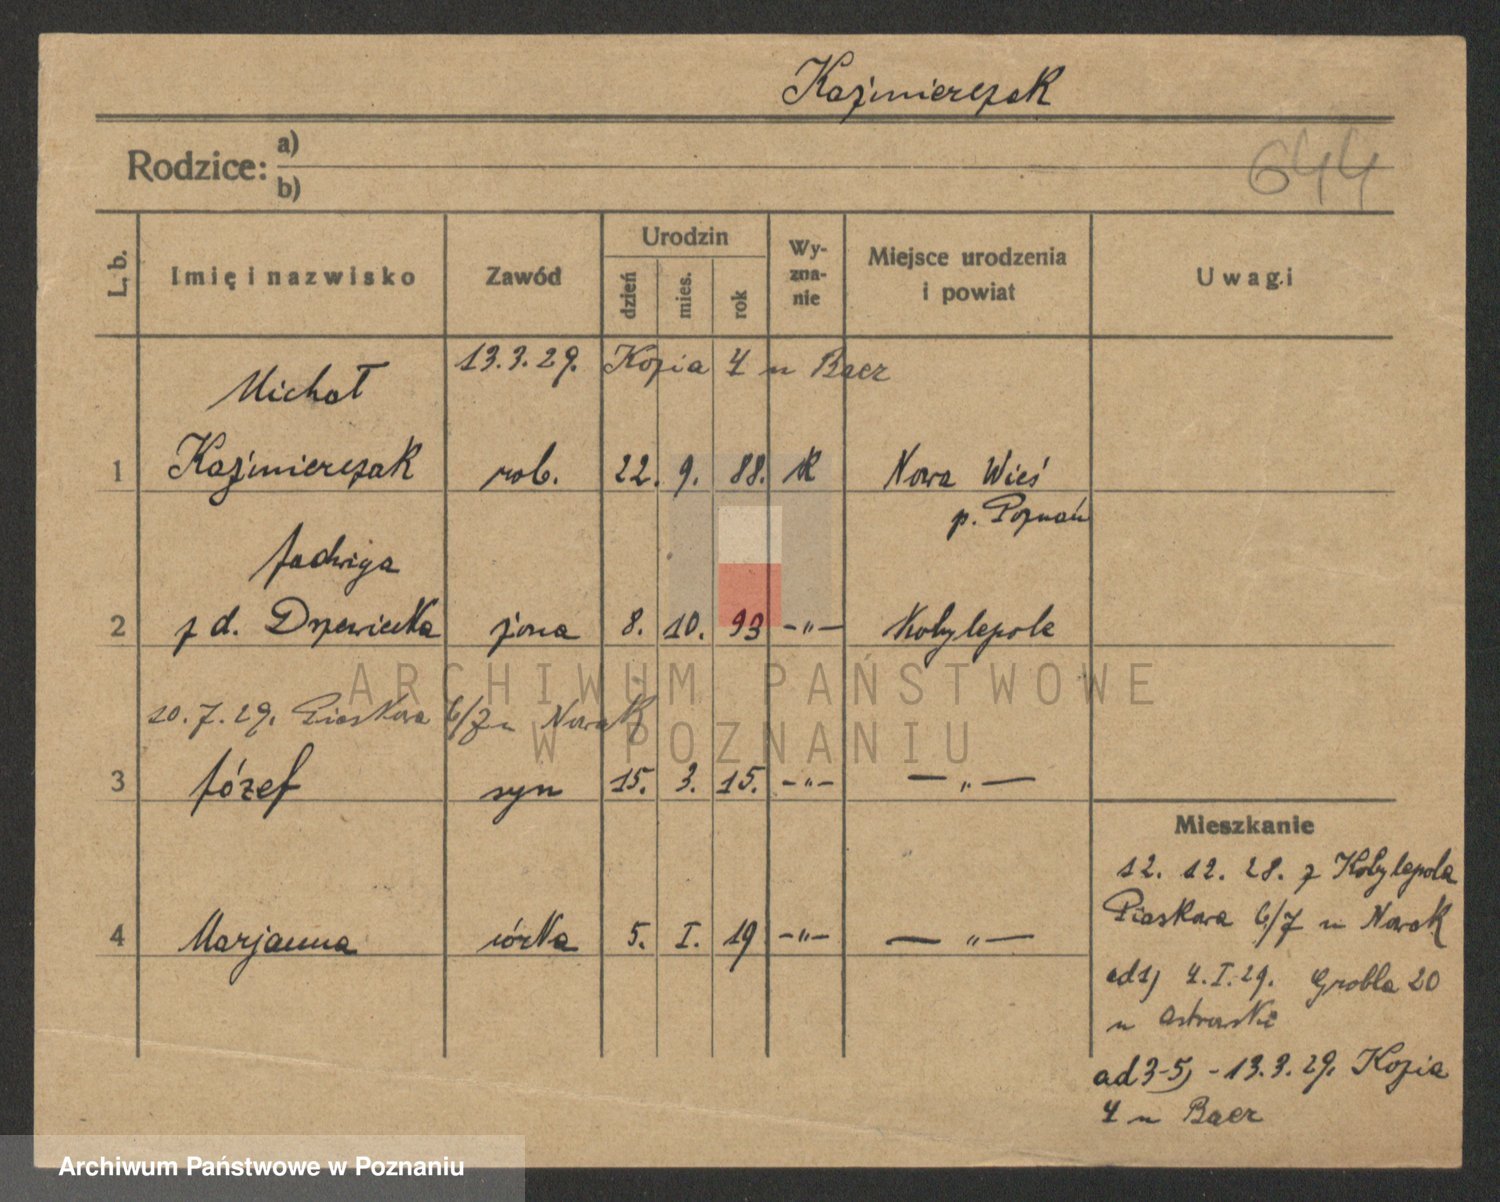 Kaźmierczak
Rodzice: a)
b)
644
L. b.
Imię i nazwisko
Zawód
Urodzin
dzień
mies.
rok
Wy-
zna-
nie
Miejsce urodzenia
i powiat
Uwagi
13.3.29. Kozia 4 u Baer
Michał
1 Kaźmierczak rob. 22. 9. 88. K Nowa Wieś
p. Poznań
Jadwiga
2 z d. Drzewiecka żona 8. 10. 93 -"- Kobylepole
ARCHIWUM PAŃSTWOWE
W POZNANIU
10.7.29. Piaskowa 6/7 u Nowak
3 Józef syn 15. 3. 15. -"- -"-
4 Marjanna córka 5. I. 19 -"- -"-
Mieszkanie
12. 12. 28. z Kobylepola
Piaskowa 6/7 u Nowak
ad1) 4.I.29. Grobla 20
u
ad 3-5) - 13.3.29. Kozia
4 u Baer
Archiwum Państwowe w Poznaniu